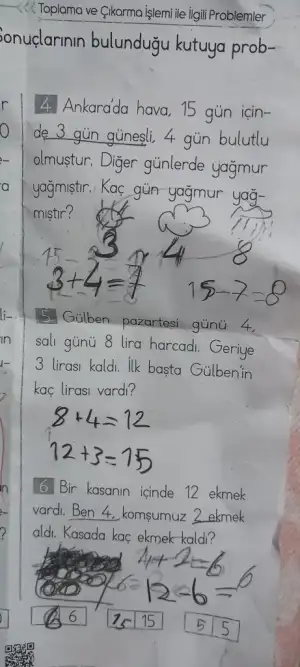 Toplama ve Çıkarma İşlemi ile İlgili Problemler
Sonuçlarının bulunduğu kutuya prob-
4. Ankara'da hava, 15 gün için-
de 3 gün güneşli, 4 gün bulutlu
olmuştur. Diğer günlerde yağmur
yağmıştır. Kaç gün yağmur yağ-
mıştır?
3 4 8
3+4=7
15-7=8
5. Gülben pazartesi günü 4,
salı günü 8 lira harcadı. Geriye
3 lirası kaldı. İlk başta Gülben'in
kaç lirası vardı?
8+4=12
12+3=15
6. Bir kasanın içinde 12 ekmek
vardı. Ben 4, komşumuz 2 ekmek
aldı. Kasada kaç ekmek kaldı?
4+2=6
12-6=6
6 6
15 15
5 5